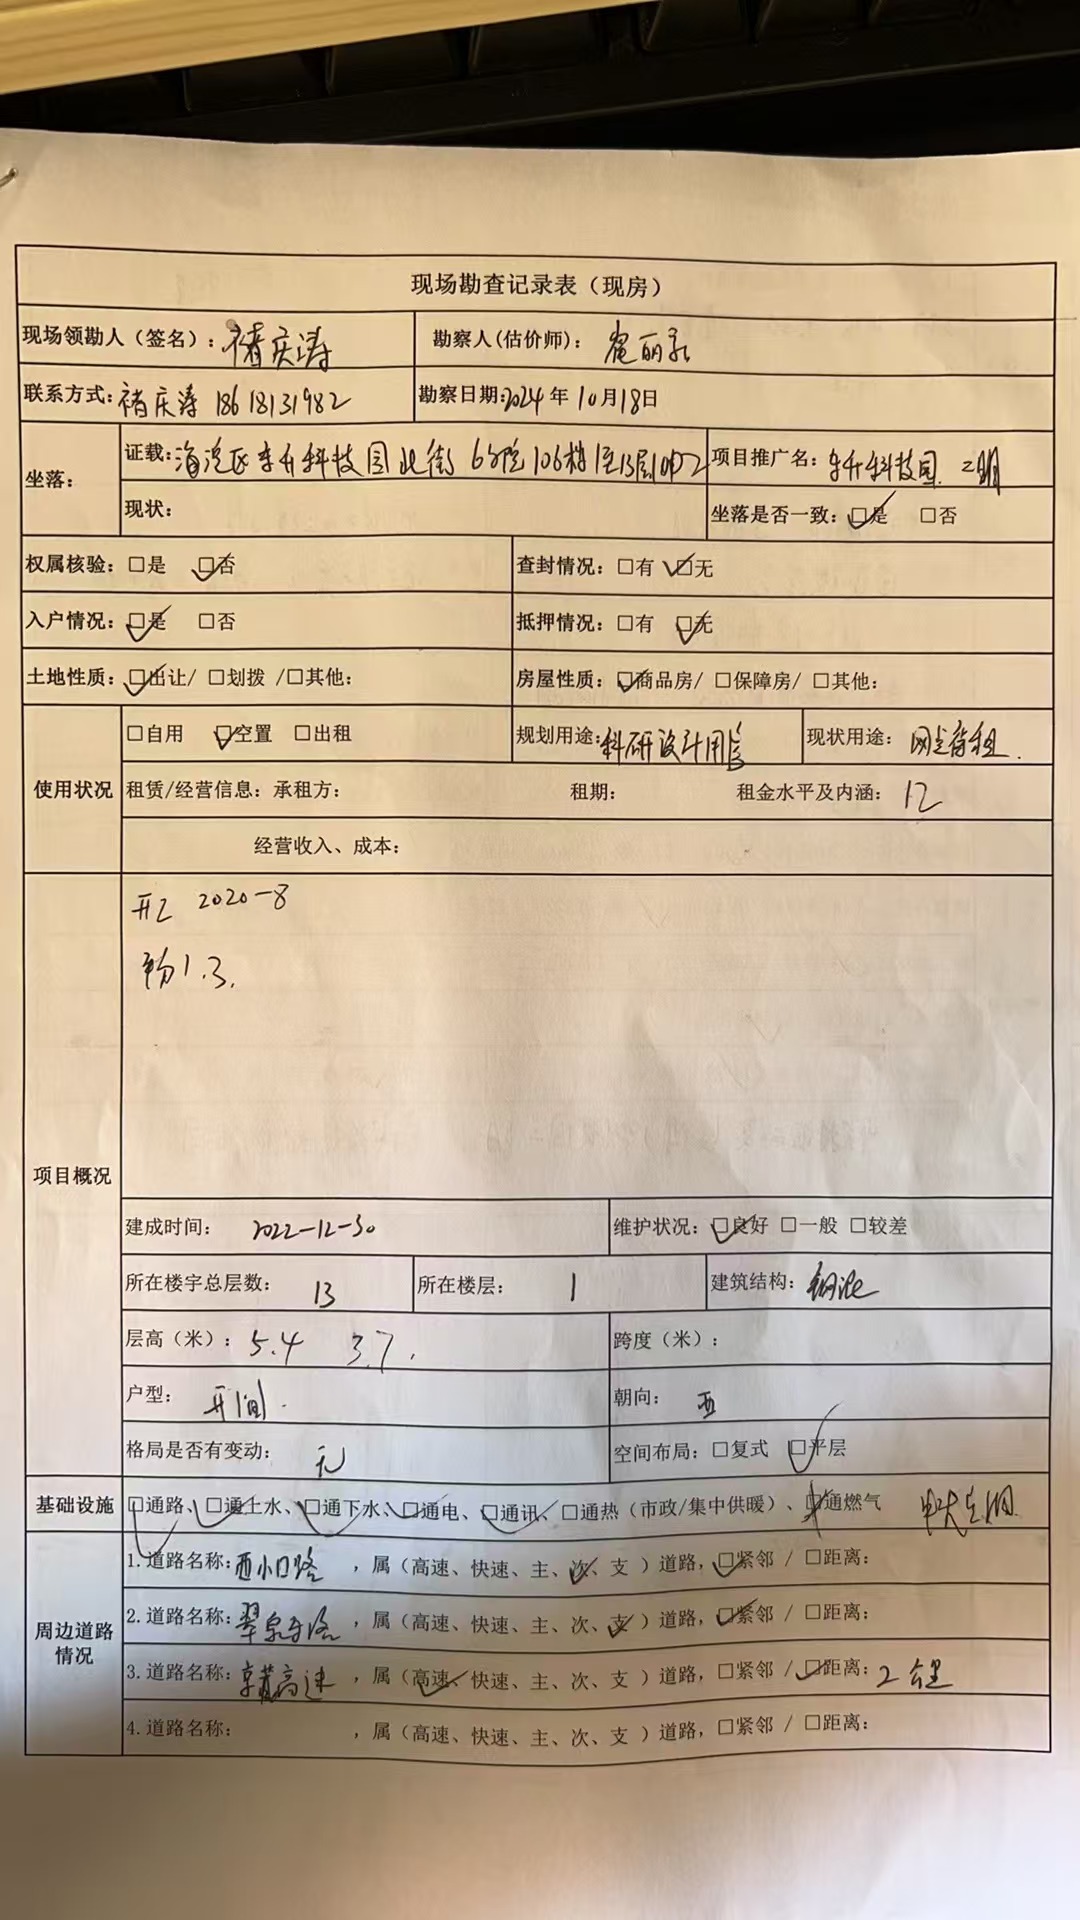 现场勘查记录表（现房）
现场领勘人（签名）：褚庆涛 勘察人(估价师)： 丽
联系方式：褚庆涛 18618131982 勘察日期:2024年10月18日
坐落： 证载：海淀区东升科技园北街6号院106栋1至13层 项目推广名：东升科技园 二期
现状： 坐落是否一致：☑是 □否
权属核验：□是 ☑否 查封情况：□有 ☑无
入户情况：☑是 □否 抵押情况：□有 ☑无
土地性质：☑出让/ □划拨 /□其他： 房屋性质：☑商品房/ □保障房/ □其他：
使用状况 □自用 ☑空置 □出租 规划用途：科研设计用房 现状用途： 待租.
租赁/经营信息：承租方： 租期： 租金水平及内涵：12
经营收入、成本：
项目概况
开工 2020-8
1.3.
建成时间： 2022-12-30 维护状况：☑良好 □一般 □较差
所在楼宇总层数： 13 所在楼层： 1 建筑结构：钢混
层高（米）：5.4 3.7. 跨度（米）：
户型： 开间. 朝向： 西
格局是否有变动： 无 空间布局：□复式 ☑平层
基础设施 ☑通路、☑通上水、☑通下水、☑通电、☑通讯、□通热（市政/集中供暖）、□通燃气 中央空调
周边道路情况
1.道路名称：西小口路 ，属（高速、快速、主、次✓、支 ）道路，☑紧邻 / □距离：
2.道路名称：翠泉路 ，属（高速、快速、主、次、支✓ ）道路，☑紧邻 / □距离：
3.道路名称：京藏高速 ，属（高速✓、快速、主、次、支 ）道路，□紧邻 / ☑距离：2公里
4.道路名称： ，属（高速、快速、主、次、支 ）道路，□紧邻 / □距离：